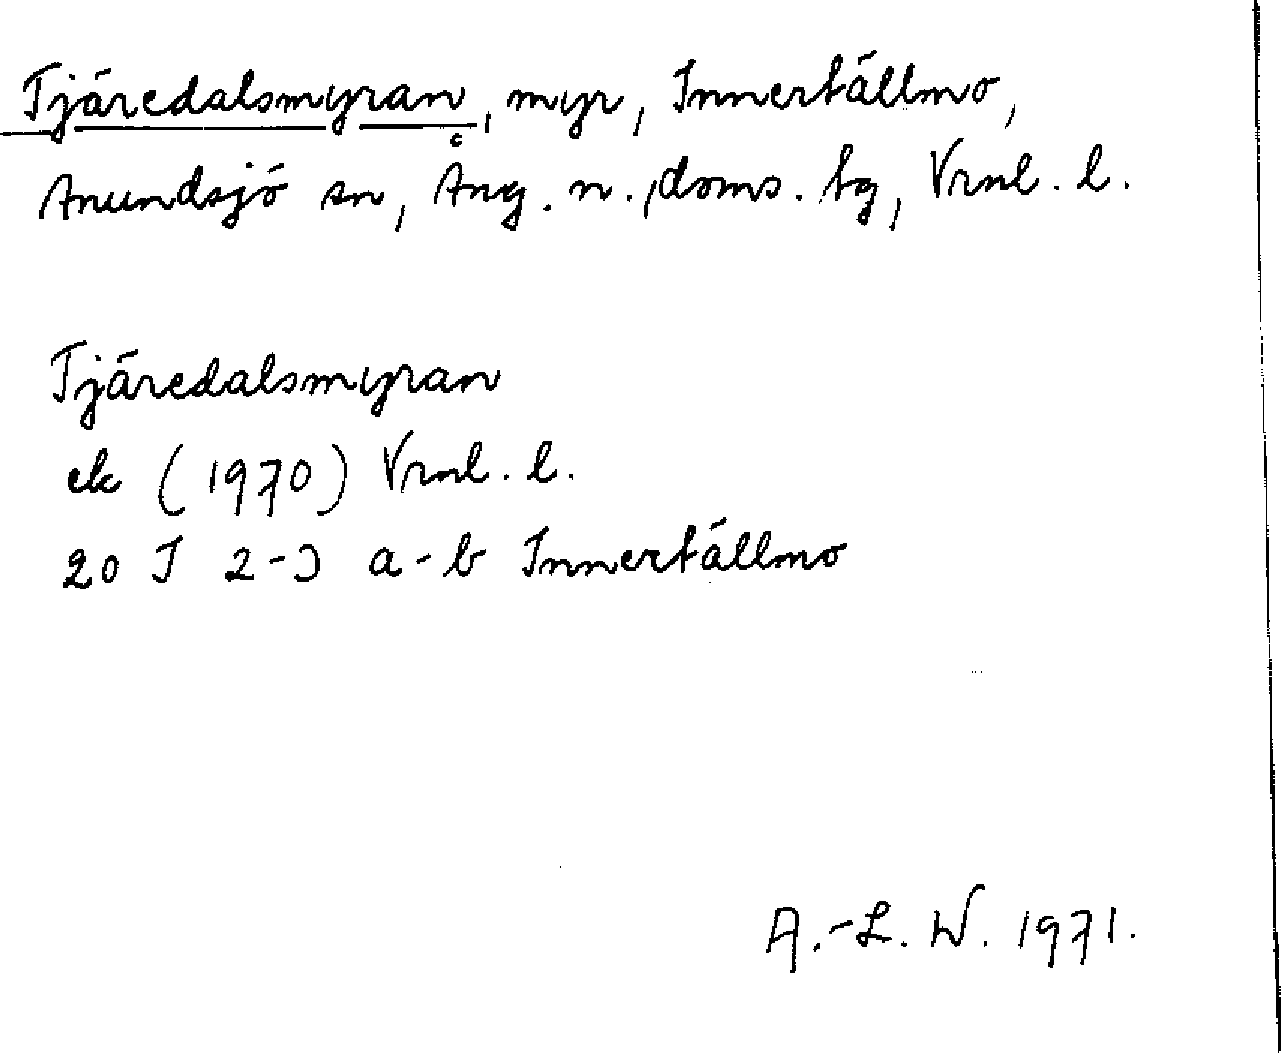 Tjäredalsmyran, myr, Innertällmo,
Anundsjö sn, Ång. n. doms. tg, Vrnl. l.
Tjäredalsmyran
ek (1970) Vrnl. l.
20 J 2-3 a-b Innertällmo
A.-L. W. 1971.